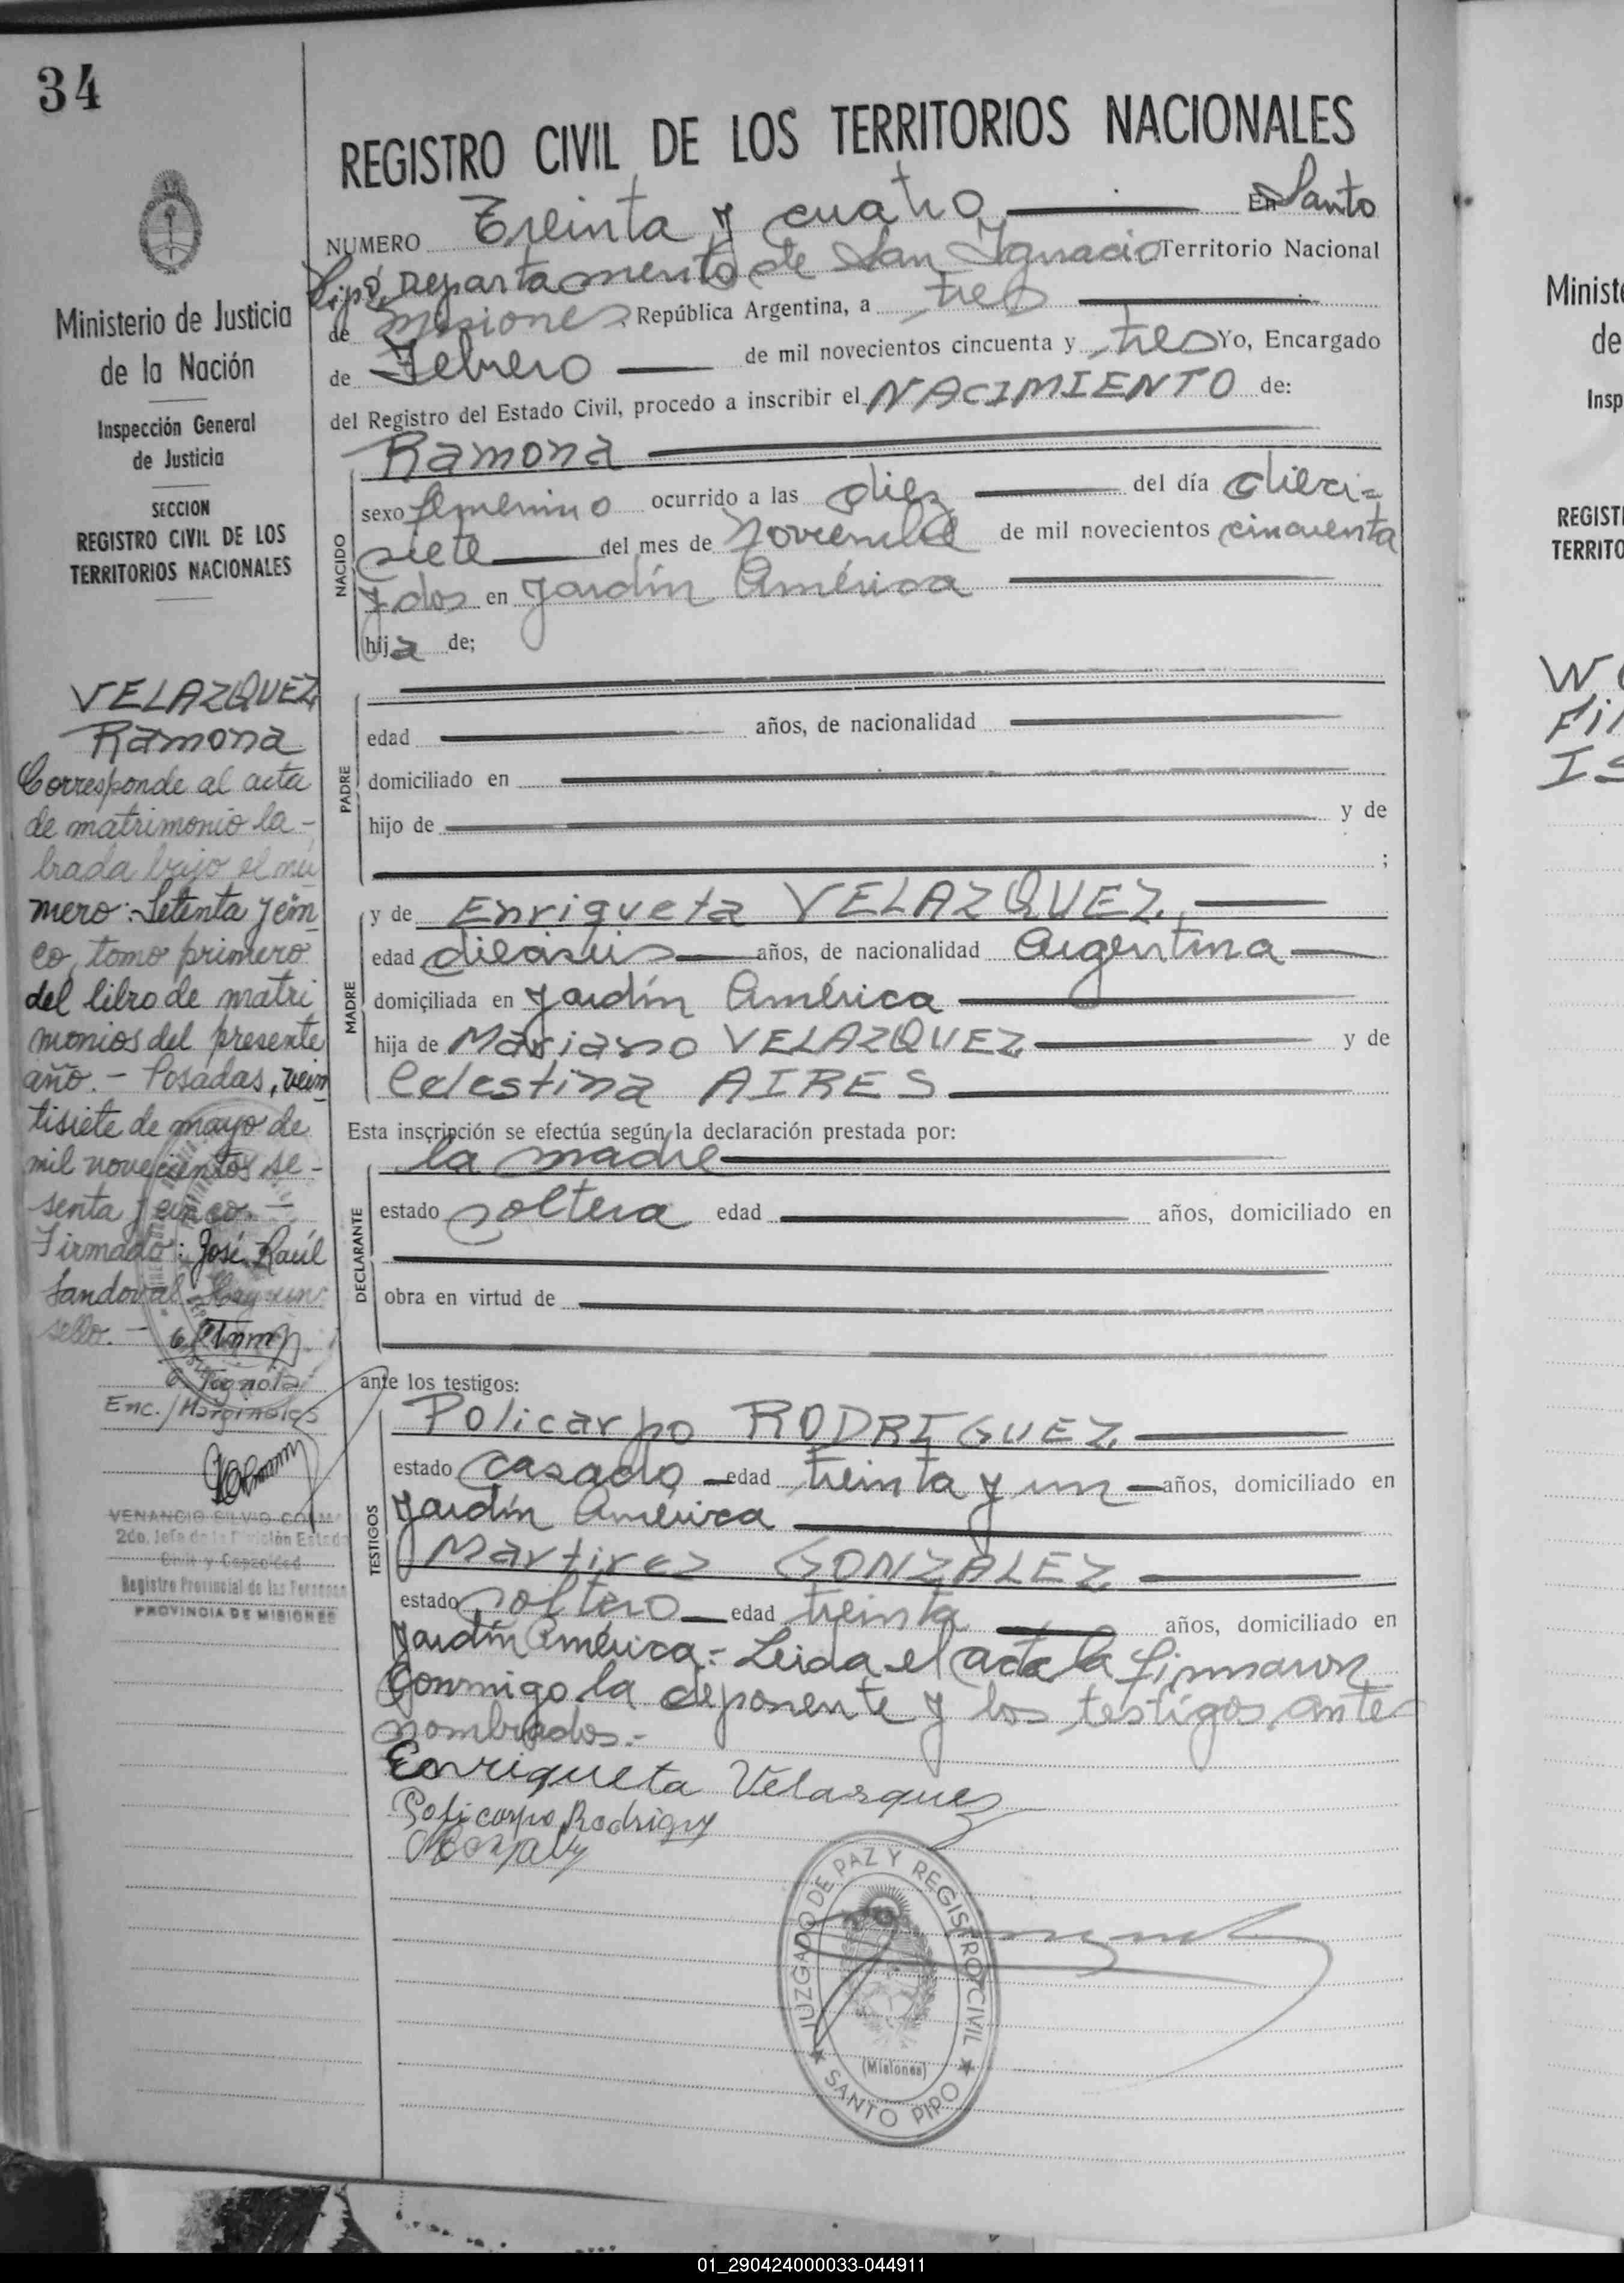 34
Ministerio de Justicia
de la Nación
Inspección General
de Justicia
SECCION
REGISTRO CIVIL DE LOS
TERRITORIOS NACIONALES
VELAZQUEZ,
Ramona
Corresponde al acta
de matrimonio la-
brada bajo el nú
mero: Setenta y cin
co, tomo primero
del libro de matri
monios del presente
año.- Posadas, vein
tisiete de mayo de
mil novecientos se-
senta y cinco.-
Firmado: José Raúl
Sandoval Hay un
sello.-
Enc./Marginales
VENANCIO SILVIO
2do. Jefe de la División Estado
Civil y Capacidad
Registro Provincial de las Personas
PROVINCIA DE MISIONES
REGISTRO CIVIL DE LOS TERRITORIOS NACIONALES
NUMERO Treinta y cuatro En Santo
Pipó, Departamento de San Ignacio Territorio Nacional
de Misiones, República Argentina, a tres
de Febrero de mil novecientos cincuenta y tres Yo, Encargado
del Registro del Estado Civil, procedo a inscribir el NACIMIENTO de:
NACIDO
Ramona
sexo femenino ocurrido a las diez del día dieci=
siete del mes de noviembre de mil novecientos cincuenta
y dos en Jardín América
hija de;
PADRE
edad años, de nacionalidad
domiciliado en
hijo de y de
;
MADRE
y de Enriqueta VELAZQUEZ,
edad dieciseis años, de nacionalidad Argentina
domiciliada en Jardín América
hija de Mariano VELAZQUEZ y de
Celestina AIRES
Esta inscripción se efectúa según la declaración prestada por:
DECLARANTE
la madre
estado soltera edad años, domiciliado en
obra en virtud de
ante los testigos:
TESTIGOS
Policarpo RODRIGUEZ
estado casado edad treinta y un años, domiciliado en
Jardín América
Martires GONZALEZ
estado soltero edad treinta años, domiciliado en
Jardín América.- Leida el acta la firmaron
conmigo la deponente y los testigos ante-
nombrados.-
Enriqueta Velasquez
Policarpo Rodriguez
JUZGADO DE PAZ Y REGISTRO CIVIL
(Misiones)
SANTO PIPO
Minist
de
Insp
REGIST
TERRITO
01_290424000033-044911